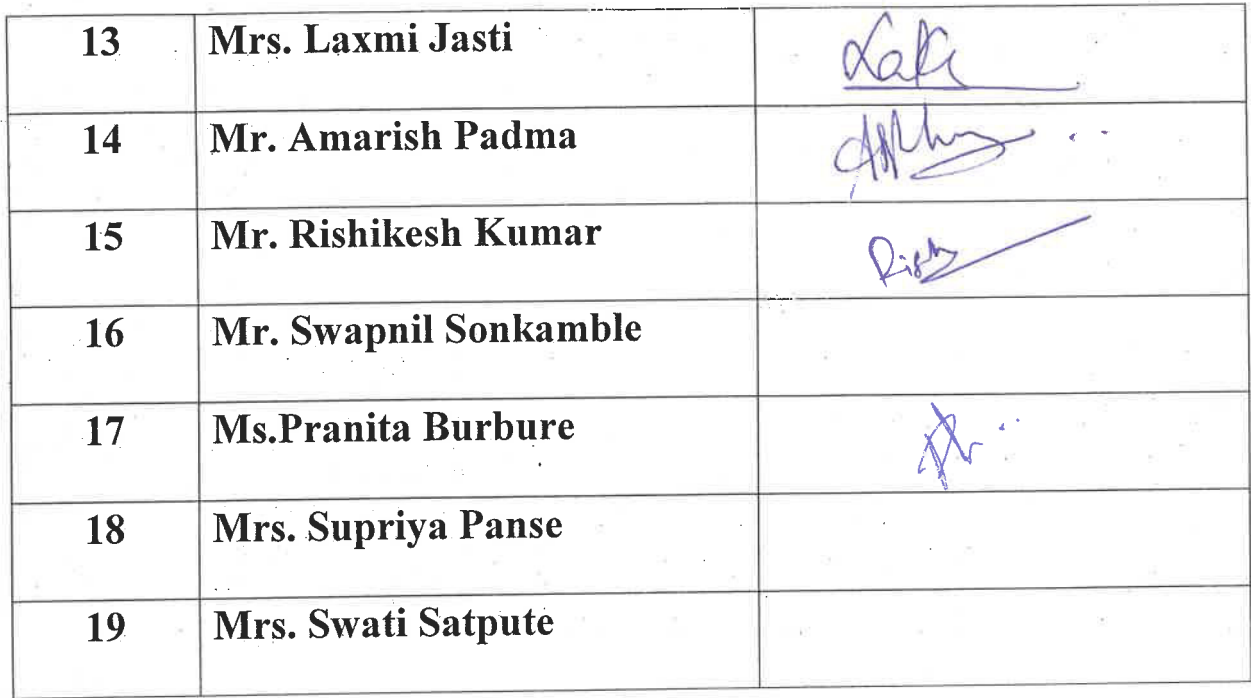 13 Mrs. Laxmi Jasti
14 Mr. Amarish Padma
15 Mr. Rishikesh Kumar
16 Mr. Swapnil Sonkamble
17 Ms.Pranita Burbure
18 Mrs. Supriya Panse
19 Mrs. Swati Satpute